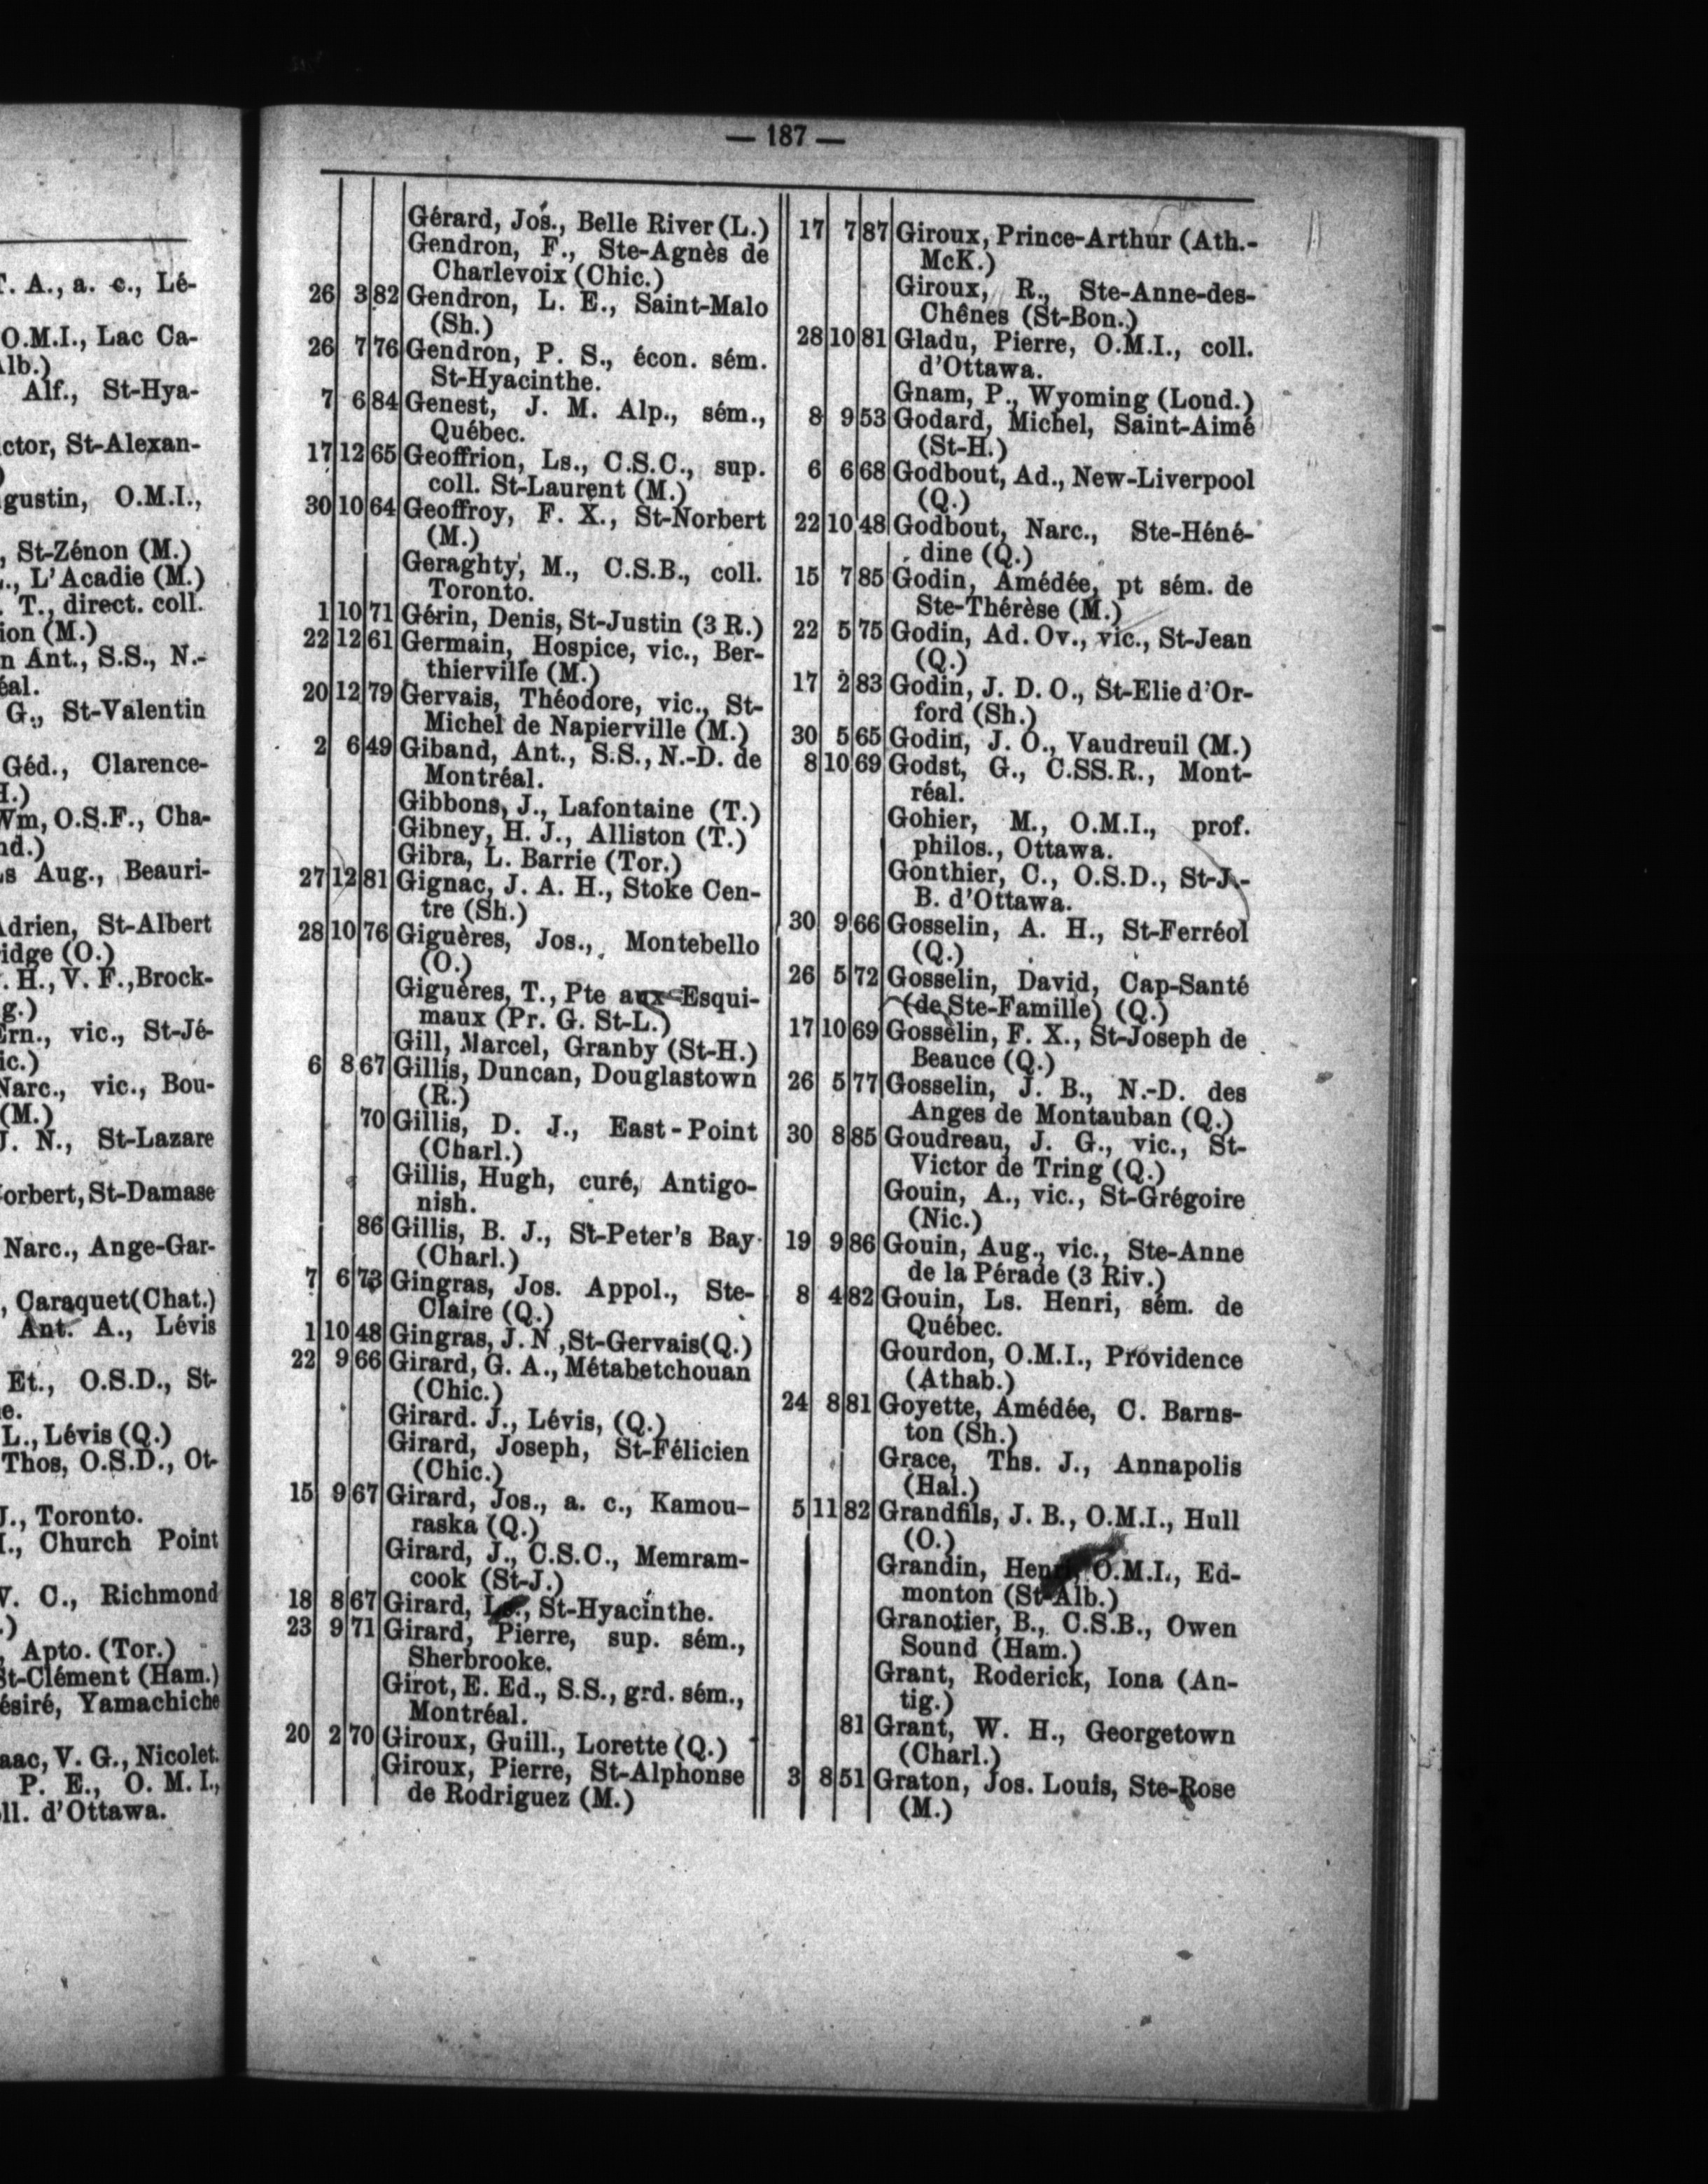 — 187 —
T. A., a. c., Lé-
O.M.I., Lac Ca-
Alb.)
Alf., St-Hya-
ictor, St-Alexan-
)
gustin, O.M.I.,
, St-Zénon (M.)
., L'Acadie (M.)
. T., direct. coll.
ion (M.)
n Ant., S.S., N.-
éal.
G., St-Valentin
Géd., Clarence-
H.)
Wm, O.S.F., Cha-
nd.)
Ls Aug., Beauri-
Adrien, St-Albert
idge (O.)
. H., V. F., Brock-
g.)
Ern., vic., St-Jé-
ic.)
Narc., vic., Bou-
(M.)
J. N., St-Lazare
Norbert, St-Damase
Narc., Ange-Gar-
, Caraquet (Chat.)
Ant. A., Lévis
Et., O.S.D., St-
e.
L., Lévis (Q.)
Thos, O.S.D., Ot-
J., Toronto.
I., Church Point
V. C., Richmond
.)
, Apto. (Tor.)
St-Clément (Ham.)
ésiré, Yamachiche
aac, V. G., Nicolet.
P. E., O. M. I.,
ll. d'Ottawa.
Gérard, Jos., Belle River (L.)
Gendron, F., Ste-Agnès de
Charlevoix (Chic.)
26 3 82 Gendron, L. E., Saint-Malo
(Sh.)
26 7 76 Gendron, P. S., écon. sém.
St-Hyacinthe.
7 6 84 Genest, J. M. Alp., sém.,
Québec.
17 12 65 Geoffrion, Ls., C.S.C., sup.
coll. St-Laurent (M.)
30 10 64 Geoffroy, F. X., St-Norbert
(M.)
Geraghty, M., C.S.B., coll.
Toronto.
1 10 71 Gérin, Denis, St-Justin (3 R.)
22 12 61 Germain, Hospice, vic., Ber-
thierville (M.)
20 12 79 Gervais, Théodore, vic., St-
Michel de Napierville (M.)
2 6 49 Giband, Ant., S.S., N.-D. de
Montréal.
Gibbons, J., Lafontaine (T.)
Gibney, H. J., Alliston (T.)
Gibra, L. Barrie (Tor.)
27 12 81 Gignac, J. A. H., Stoke Cen-
tre (Sh.)
28 10 76 Giguères, Jos., Montebello
(O.)
Giguères, T., Pte aux Esqui-
maux (Pr. G. St-L.)
Gill, Marcel, Granby (St-H.)
6 8 67 Gillis, Duncan, Douglastown
(R.)
70 Gillis, D. J., East-Point
(Charl.)
Gillis, Hugh, curé, Antigo-
nish.
86 Gillis, B. J., St-Peter's Bay
(Charl.)
7 6 73 Gingras, Jos. Appol., Ste-
Claire (Q.)
1 10 48 Gingras, J. N , St-Gervais (Q.)
22 9 66 Girard, G. A., Métabetchouan
(Chic.)
Girard. J., Lévis, (Q.)
Girard, Joseph, St-Félicien
(Chic.)
15 9 67 Girard, Jos., a. c., Kamou-
raska (Q.)
Girard, J., C.S.C., Memram-
cook (St-J.)
18 8 67 Girard, St-Hyacinthe.
23 9 71 Girard, Pierre, sup. sém.,
Sherbrooke.
Girot, E. Ed., S.S., grd. sém.,
Montréal.
20 2 70 Giroux, Guill., Lorette (Q.)
Giroux, Pierre, St-Alphonse
de Rodriguez (M.)
17 7 87 Giroux, Prince-Arthur (Ath.-
McK.)
Giroux, R., Ste-Anne-des-
Chênes (St-Bon.)
28 10 81 Gladu, Pierre, O.M.I., coll.
d'Ottawa.
Gnam, P., Wyoming (Lond.)
8 9 53 Godard, Michel, Saint-Aimé
(St-H.)
6 6 68 Godbout, Ad., New-Liverpool
(Q.)
22 10 48 Godbout, Narc., Ste-Héné-
dine (Q.)
15 7 85 Godin, Amédée, pt sém. de
Ste-Thérèse (M.)
22 5 75 Godin, Ad. Ov., vic., St-Jean
(Q.)
17 2 83 Godin, J. D. O., St-Elie d'Or-
ford (Sh.)
30 5 65 Godin, J. O., Vaudreuil (M.)
8 10 69 Godst, G., C.SS.R., Mont-
réal.
Gohier, M., O.M.I., prof.
philos., Ottawa.
Gonthier, C., O.S.D., St-J.-
B. d'Ottawa.
30 9 66 Gosselin, A. H., St-Ferréol
(Q.)
26 5 72 Gosselin, David, Cap-Santé
(de Ste-Famille) (Q.)
17 10 69 Gosselin, F. X., St-Joseph de
Beauce (Q.)
26 5 77 Gosselin, J. B., N.-D. des
Anges de Montauban (Q.)
30 8 85 Goudreau, J. G., vic., St-
Victor de Tring (Q.)
Gouin, A., vic., St-Grégoire
(Nic.)
19 9 86 Gouin, Aug., vic., Ste-Anne
de la Pérade (3 Riv.)
8 4 82 Gouin, Ls. Henri, sém. de
Québec.
Gourdon, O.M.I., Providence
(Athab.)
24 8 81 Goyette, Amédée, C. Barns-
ton (Sh.)
Grace, Ths. J., Annapolis
(Hal.)
5 11 82 Grandfils, J. B., O.M.I., Hull
(O.)
Grandin, Henri, O.M.I., Ed-
monton (St-Alb.)
Granotier, B., C.S.B., Owen
Sound (Ham.)
Grant, Roderick, Iona (An-
tig.)
81 Grant, W. H., Georgetown
(Charl.)
3 8 51 Graton, Jos. Louis, Ste-Rose
(M.)